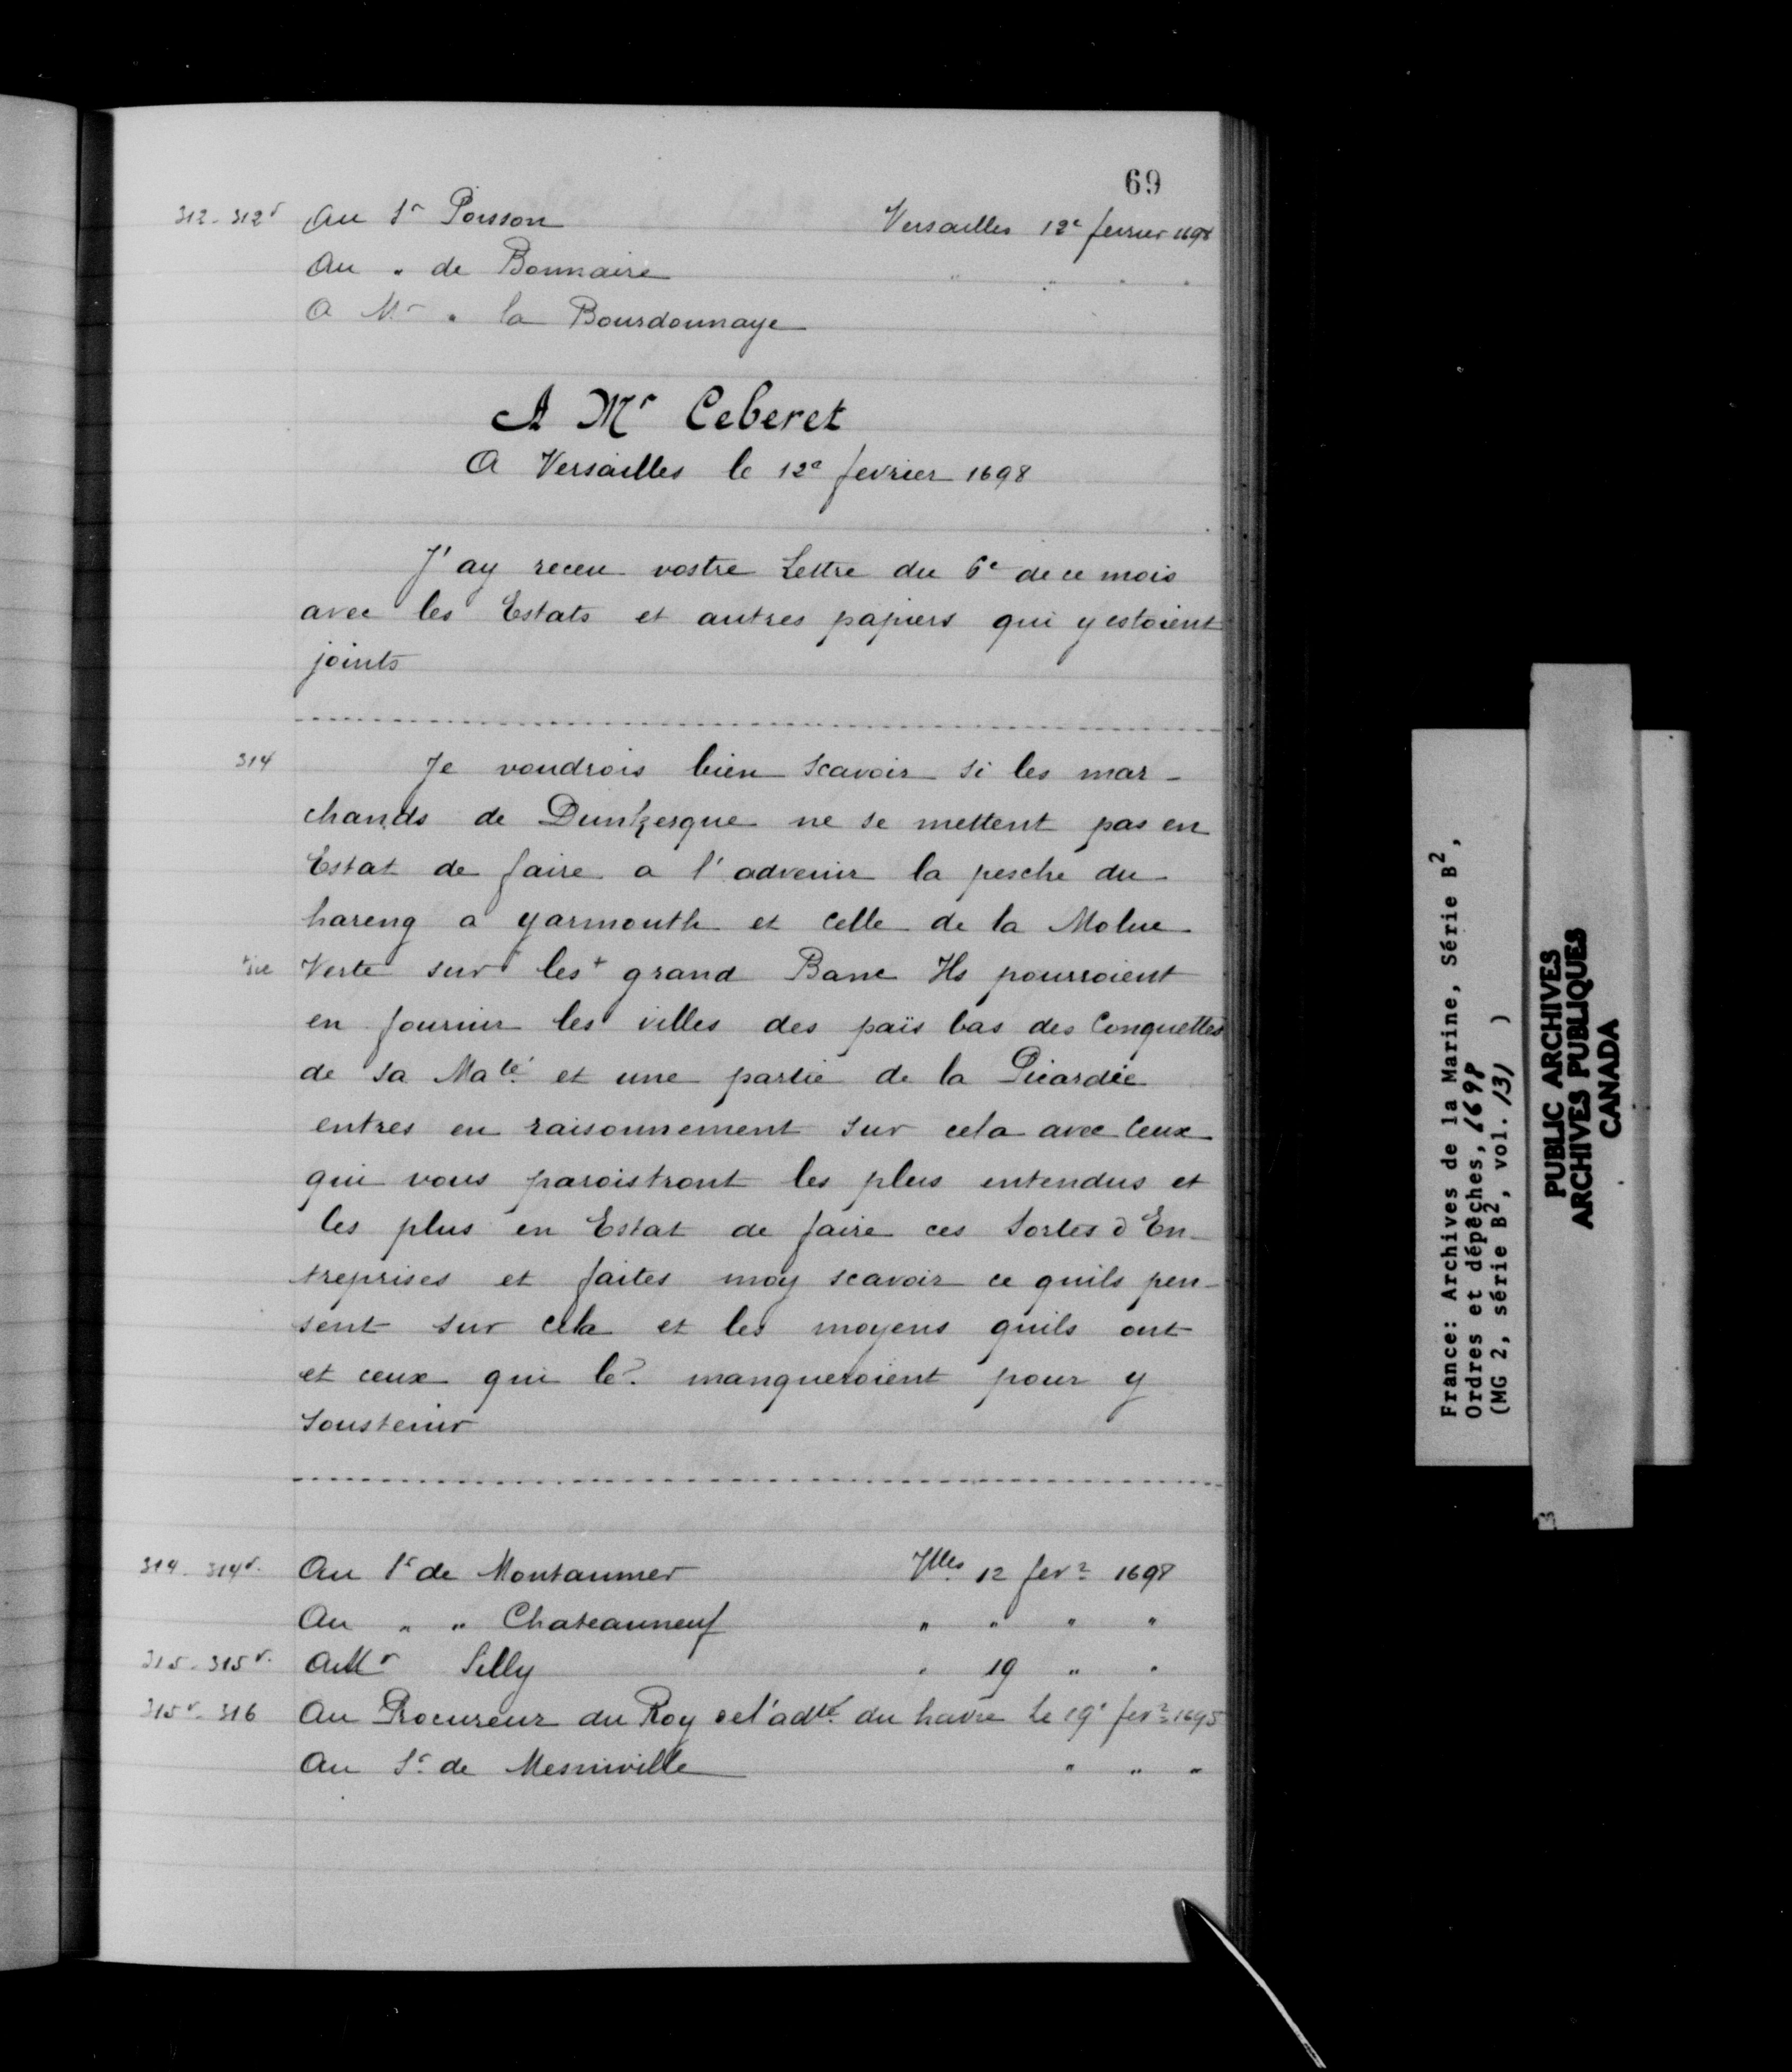 69
312-312v Au Sr Poisson Versailles 12e fevrier 1698
Au " de Bonnaire " " " "
A Mr " la Bourdonnaye
A Mr Ceberet
A Versailles le 12e fevrier 1698
J'ay receu vostre Lettre du 6e de ce mois
avec les Estats et autres papiers qui y estoient
joints
314 Je voudrois bien scavoir si les mar-
chands de Dunkerque ne se mettent pas en
Estat de faire a l'advenir la pesche du
hareng a yarmouth et celle de la Molue
+sic Verte sur les+ grand Banc Ils pourroient
en fournir les villes des païs bas des Conquettes
de sa Maté et une partie de la Picardie
entres en raisonnement sur cela avec ceux
qui vous paroistront les plus entendus et
les plus en Estat de faire ces sortes d'En-
treprises et faites moy scavoir ce quils pen-
sent sur cela et les moyens quils ont
et ceux qui le? manqueroient pour y
soustenir
314-314v. Au Sr de Montaumer Vlles 12 fevr 1698
Au " " Chateauneuf " " " "
315-315v. A Mr Silly " 19 " "
315v-316 Au Procureur du Roy de l'adté du havre Le 19e fevr 1695
Au Sr de Mesniville " " "
France: Archives de la Marine, Série B2,
Ordres et dépêches, 1698
(MG 2, série B2, vol. 131 )
PUBLIC ARCHIVES
ARCHIVES PUBLIQUES
CANADA
3